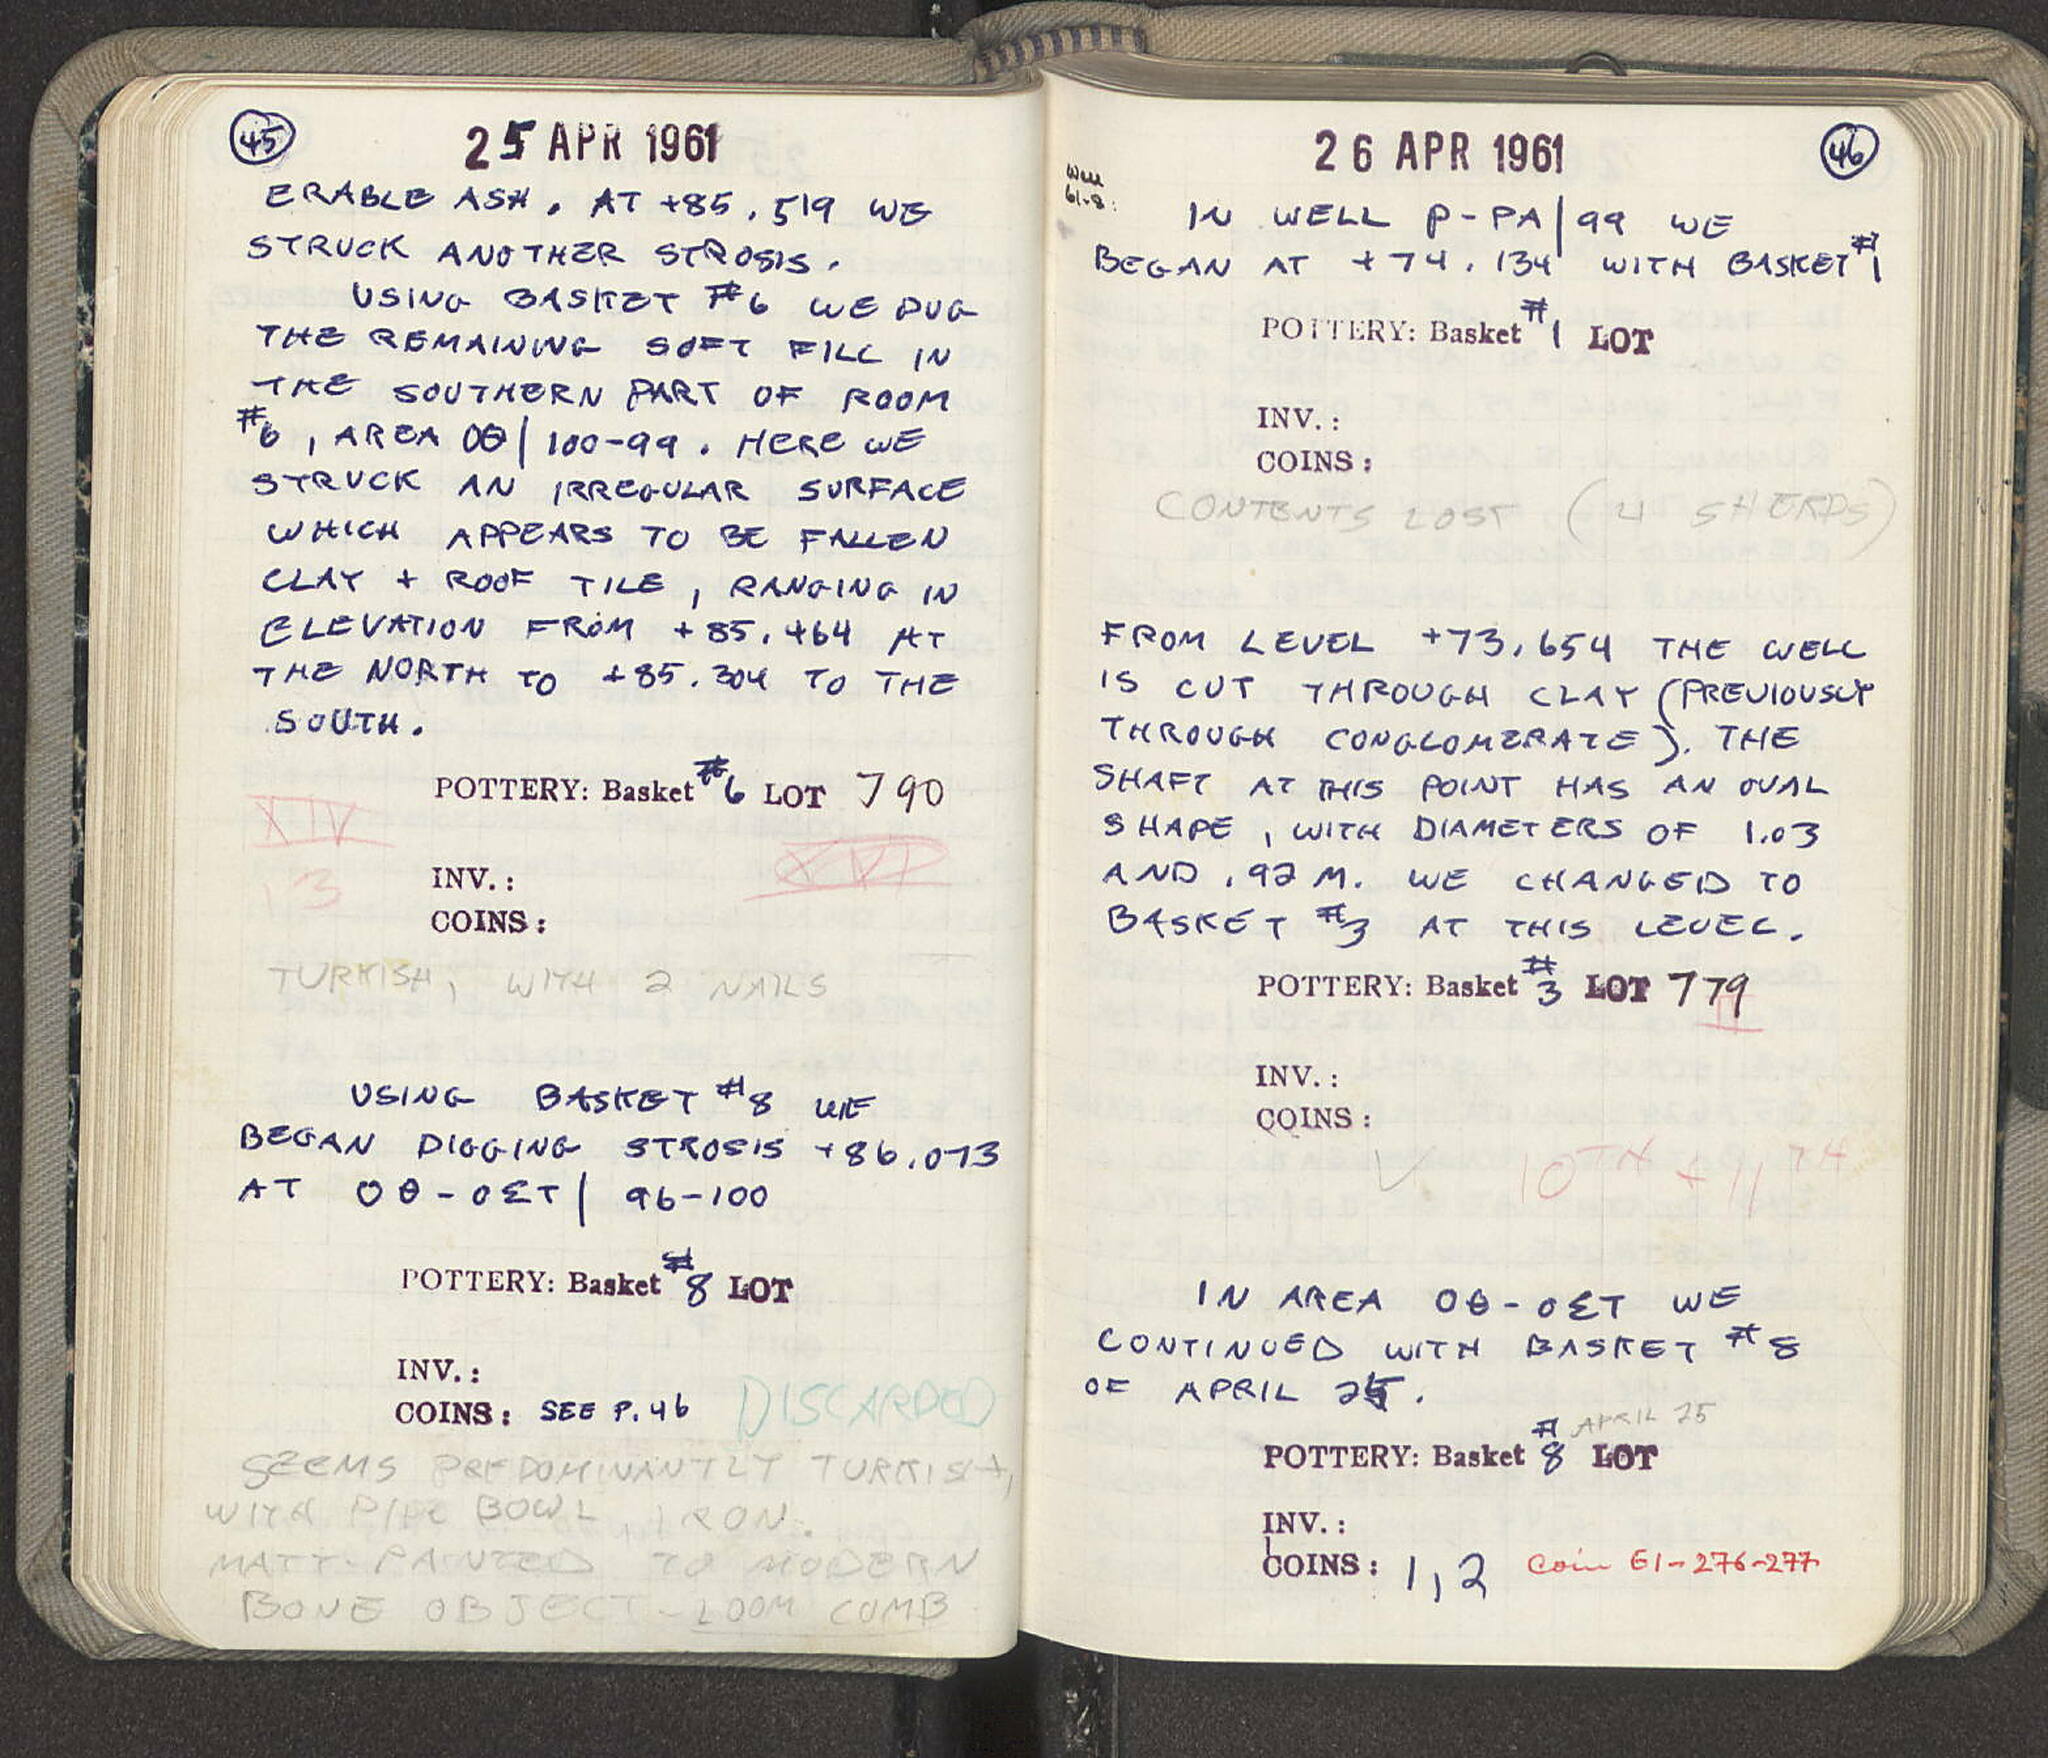 45
25 APR 1961
ERABLE ASH. AT +85.519 WE
STRUCK ANOTHER STROSIS.
USING BASKET #6 WE DUG
THE REMAINING SOFT FILL IN
THE SOUTHERN PART OF ROOM
#6, AREA OΘ/100-99. HERE WE
STRUCK AN IRREGULAR SURFACE
WHICH APPEARS TO BE FALLEN
CLAY + ROOF TILE, RANGING IN
ELEVATION FROM +85.464 AT
THE NORTH TO +85.304 TO THE
SOUTH.
POTTERY: Basket #6 LOT 790
XIV
XVI
13
INV.:
COINS:
TURKISH, WITH 2 NAILS
USING BASKET #8 WE
BEGAN DIGGING STROSIS +86.073
AT OΘ-OΣT/96-100
POTTERY: Basket #8 LOT
INV.:
COINS: SEE P.46
DISCARDED
SEEMS PREDOMINANTLY TURKISH,
WITH PIPE BOWL, IRON.
MATT-PAINTED TO MODERN
BONE OBJECT - LOOM COMB
26 APR 1961
46
Well
61-8:
IN WELL P-PA/99 WE
BEGAN AT +74.134 WITH BASKET #1
POTTERY: Basket #1 LOT
INV.:
COINS:
CONTENTS LOST (4 SHERDS)
FROM LEVEL +73.654 THE WELL
IS CUT THROUGH CLAY (PREVIOUSLY
THROUGH CONGLOMERATE). THE
SHAFT AT THIS POINT HAS AN OVAL
SHAPE, WITH DIAMETERS OF 1.03
AND .92 M. WE CHANGED TO
BASKET #3 AT THIS LEVEL.
POTTERY: Basket #3 LOT 779
II
INV.:
COINS:
10TH + 11TH
IN AREA OΘ-OΣT WE
CONTINUED WITH BASKET #8
OF APRIL 25.
APRIL 25
POTTERY: Basket #8 LOT
INV.:
COINS: 1, 2 Coin 61-276-277